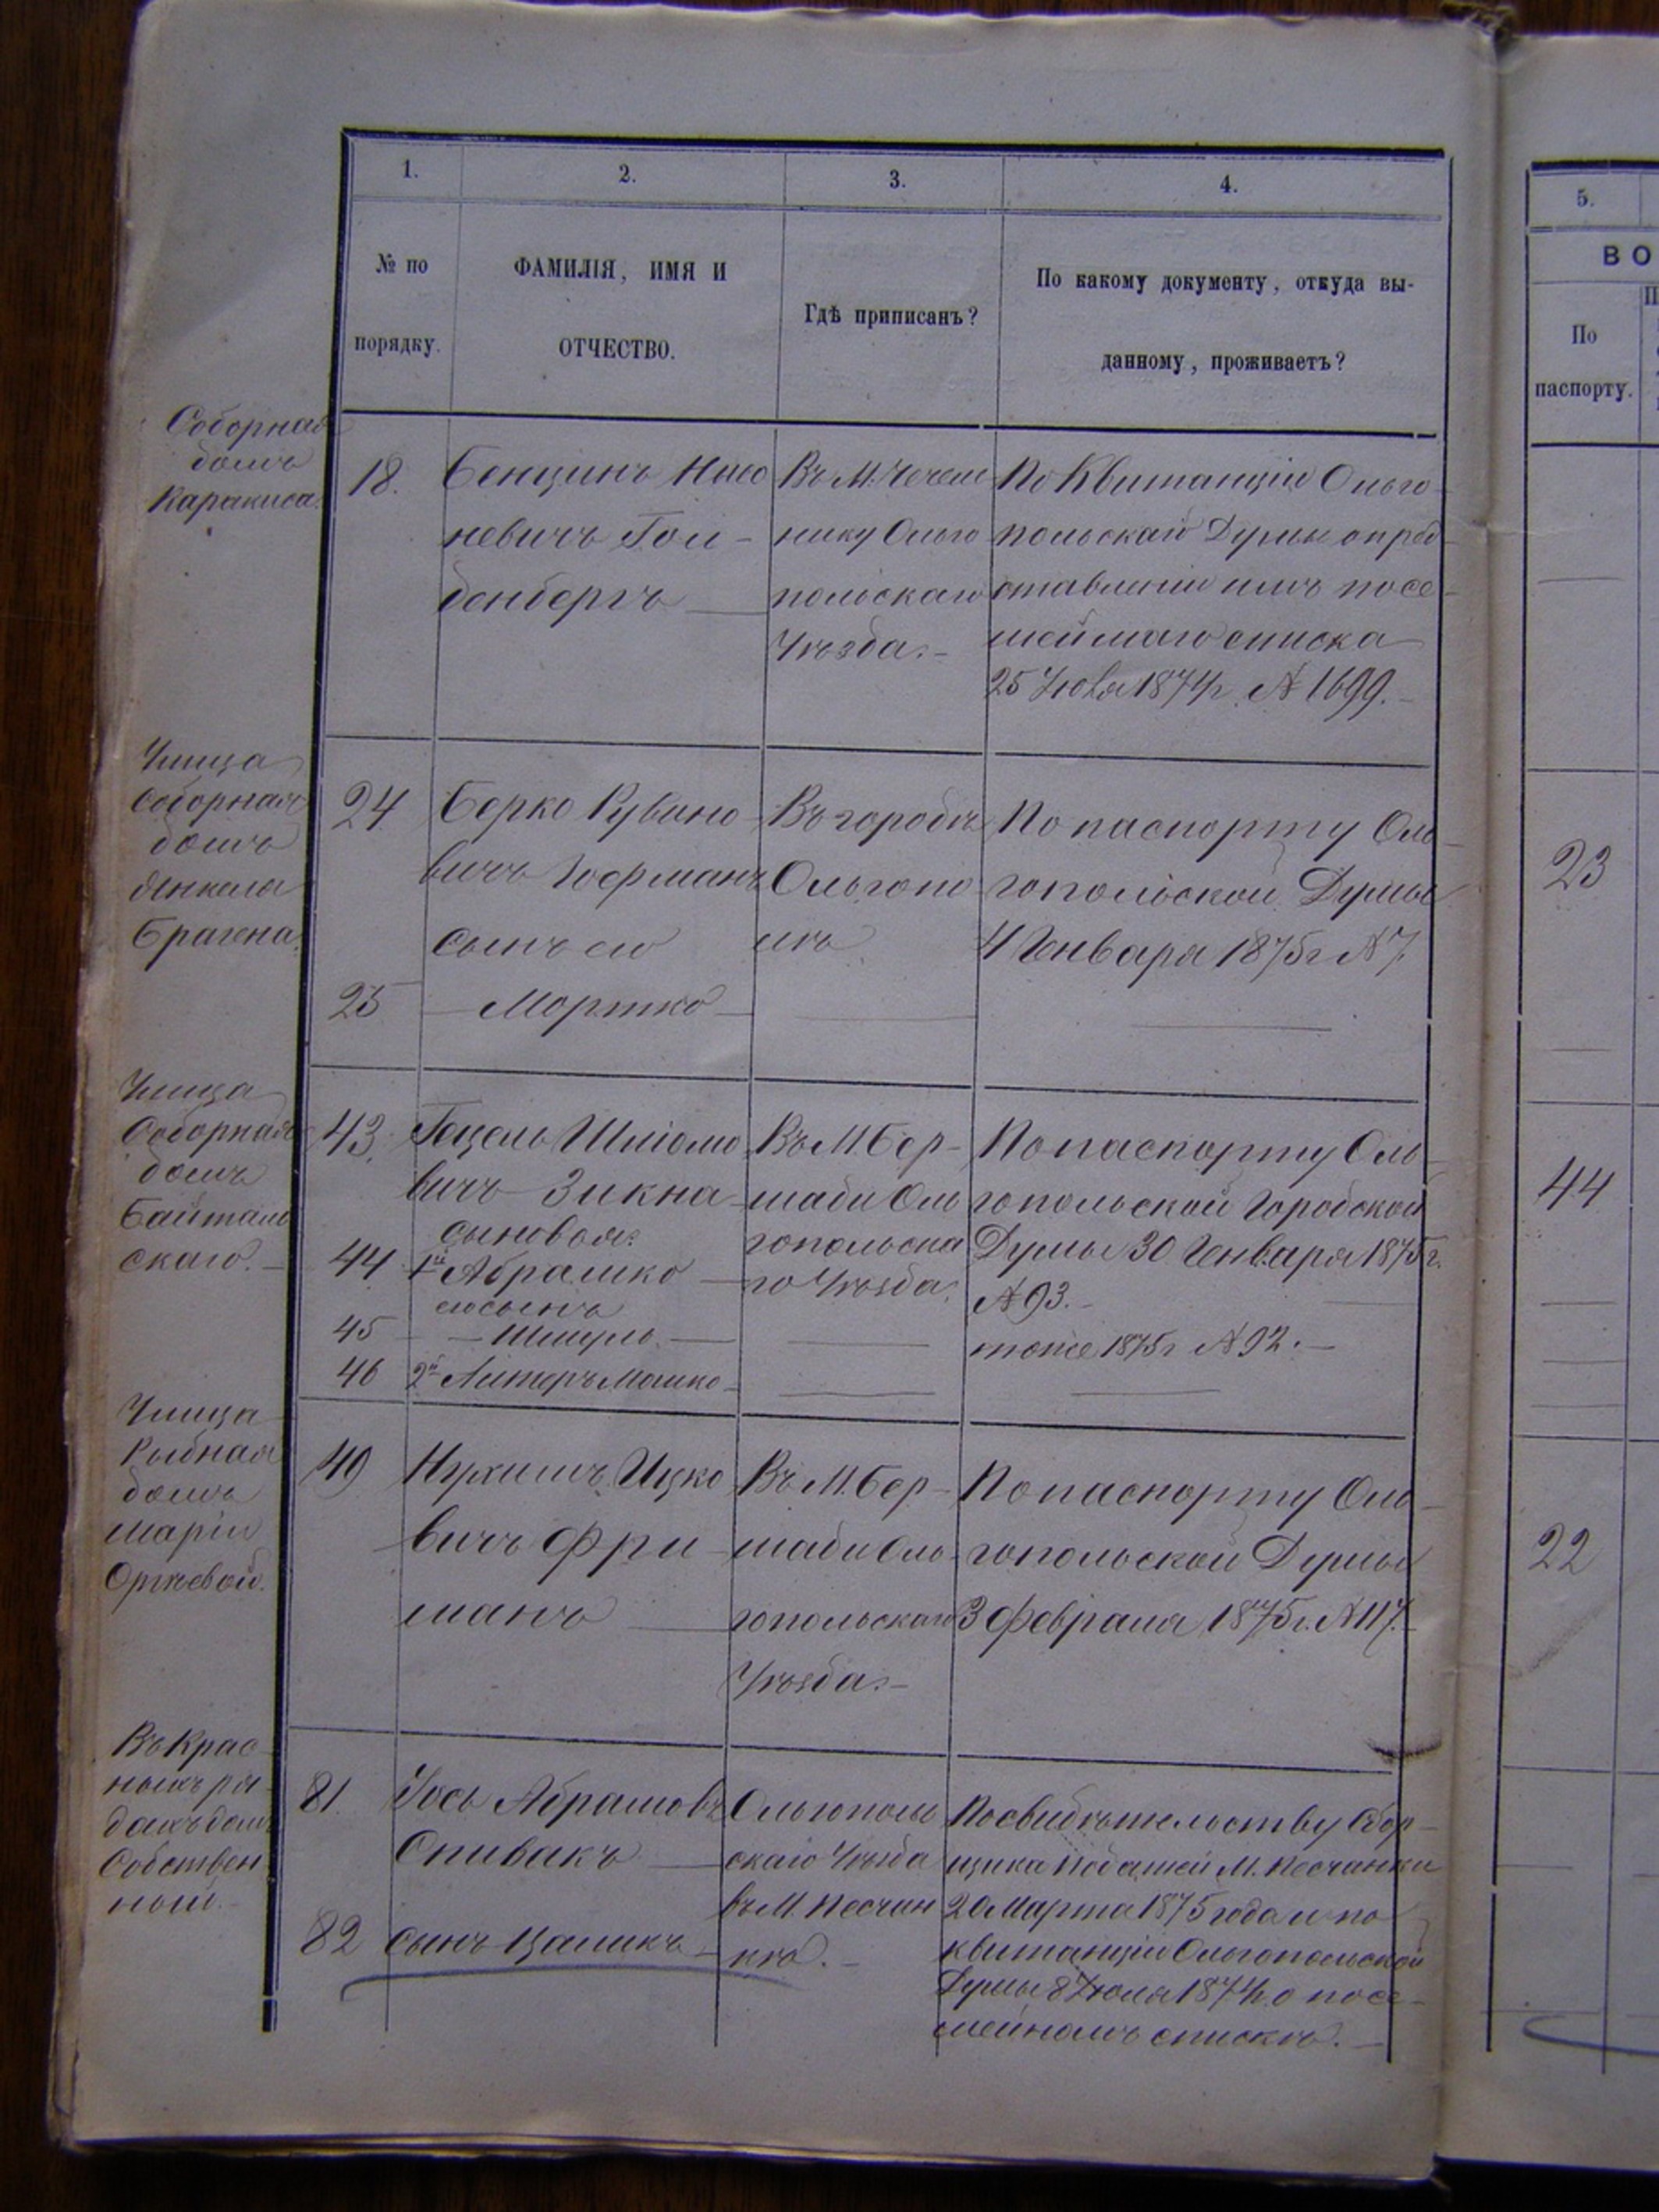 1.
2.
3.
4.
№ по
порядку.
ФАМИЛІЯ, ИМЯ И
ОТЧЕСТВО.
Гдѣ приписанъ?
По какому документу, откуда вы-
данному, проживаетъ?
5.
ВО
По
паспорту.
Соборная
домъ
Каракиса.
18.
Бенцинъ Нисо
невичъ Гол-
денбергъ
Въ М. Чечель
нику Ольго
польскаго
Уѣзда.-
По Квитанціи Ольго-
польской Думы о пред-
ставленіи имъ посе-
мейнаго списка
25 Іюля 1874 г. № 1699.-
Улица
Соборная
домъ
Янкеля
Брагена.
24
Берко Рувино-
вичъ Гофманъ
сынъ его
Въ городѣ
Ольгопо-
лѣ
По паспорту Оль-
гопольской Думы
4 Генваря 1875 г № 7.
23
25
- Мортко -
Улица
Соборная
домъ
Байталь
скаго.-
43.
Гецель Шліомо
вичъ Зикна-
сыновья:
Въ М. Бер-
шади Оль
гопольска
го Уѣзда.
По паспорту Оль-
гопольской Городской
Думы 30 Генваря 1875 г.
№ 93.-
44
44
1й Абрамко -
его сынъ
45
- Шмуль. -
тоже 1875 г № 92.-
46
2й Литеръ Мошко -
Улица
Рыбная
домъ
Маріи
49
Нухимъ Ицко
вичъ Фри-
манъ
Въ М. Бер-
шади Оль-
гопольскаго
Уѣзда.-
По паспорту Оль-
гопольской Думы
3 Февраля 1875 г. № 117.-
22
Въ Крас-
ныхъ ря-
дахъ домъ
Собствен
ный.-
81.
Іось Абрамовъ
Спивакъ
Ольгополь
скаго Уѣзда
въ М. Песчан
кѣ.-
По свидѣтельству Сбор-
щика Податей М. Песчанки
20 Марта 1875 года и по
квитанціи Ольгопольской
Думы 8 Іюля 1874 г. о посе-
мейномъ спискѣ.-
82
сынъ Цаликъ -